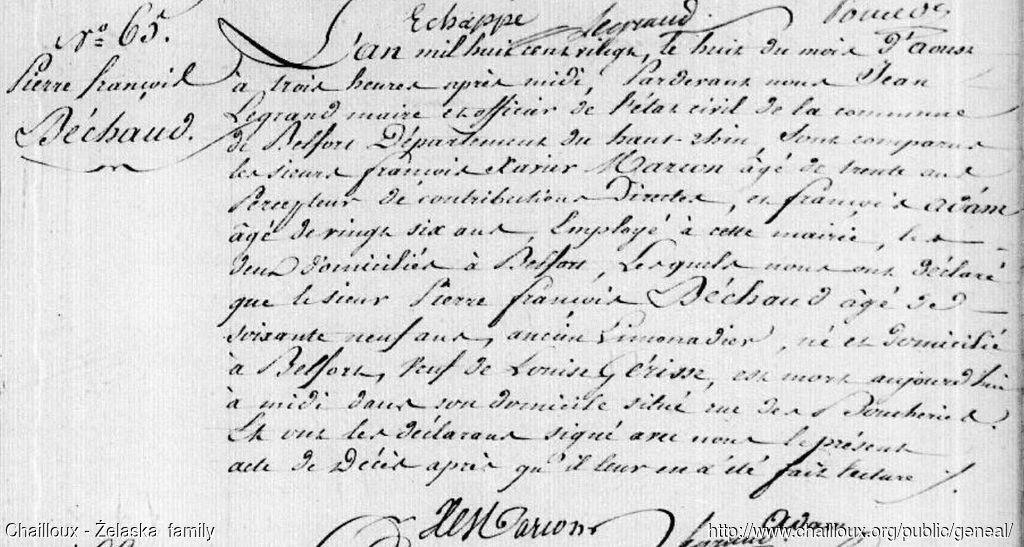 Echappé Legrand
N.o 65.
Pierre françois
Béchaud.
L'an mil huit cent vingt, le huit du mois d'aoust
à trois heures après midi, Pardevant nous Jean
Legrand maire et officier de l'état civil de la commune
de Belfort Département du haut-rhin, sont comparus
les sieurs françois Xavier Marcon âgé de trente ans
Percepteur de contributions Directes, et françois adam
âgé de vingt six ans, Employé à cette mairie, les
deux domiciliés à Belfort, Lesquels nous ont déclaré
que le sieur Pierre françois Béchaud âgé de
soixante neuf ans, ancien Limonadier, né et domicilié
à Belfort, veuf de Louise Gérisse, est mort aujourd'hui
à midi dans son domicile situé rue des Boucheries.
Et ont les déclarans signé avec nous le présent
acte de Décès après qu'il leur en a été fait lecture ./.
Marcon
Adam
Chailloux - Želaska family
http://www.chailloux.org/public/geneal/